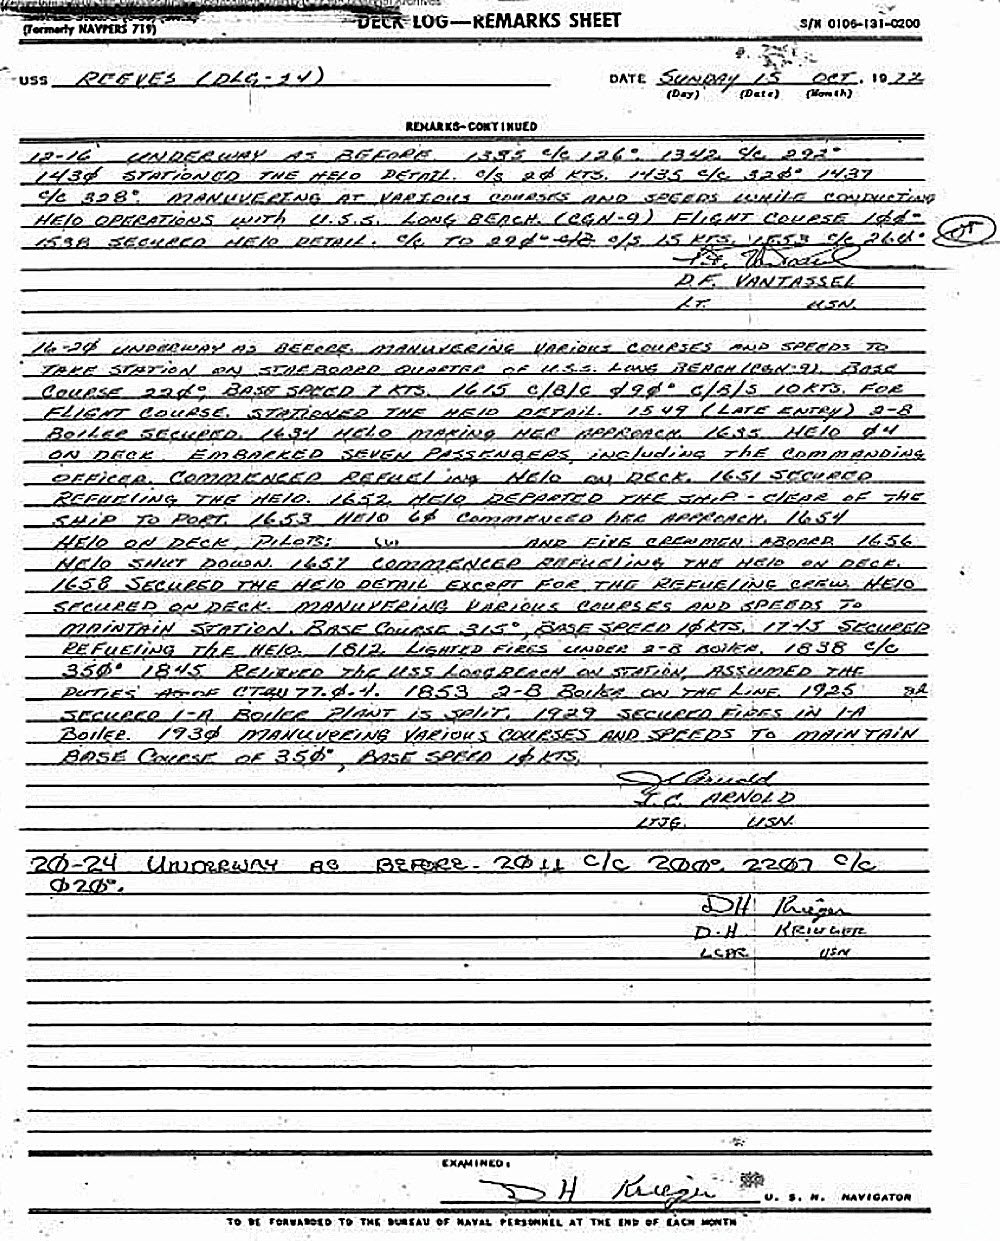 (Formerly NAVPERS 719)
DECK LOG—REMARKS SHEET
S/N 0106-131-0200
USS REEVES (DLG-24) DATE SUNDAY 15 OCT, 1972
(Day) (Date) (Month)
REMARKS-CONTINUED
12-16 UNDERWAY AS BEFORE. 1335 c/c 126°. 1342 c/c 292°
143Ø STATIONED THE HELO DETAIL. c/s 2Ø KTS. 1435 c/c 32Ø° 1437
c/c 328°. MANUVERING AT VARIOUS COURSES AND SPEEDS WHILE CONDUCTING
HELO OPERATIONS WITH U.S.S. LONG BEACH. (CGN-9) FLIGHT COURSE 1ØØ°
1538 SECURED HELO DETAIL. c/c TO 29Ø° c/s 15 KTS. 1553 c/c 26Ø°
D.F. VANTASSEL
LT. USN.
16-2Ø UNDERWAY AS BEFORE. MANUVERING VARIOUS COURSES AND SPEEDS TO
TAKE STATION ON STARBOARD QUARTER OF U.S.S. LONG BEACH (CGN-9). BASE
COURSE 22Ø°, BASE SPEED 7 KTS. 1615 C/B/C Ø9Ø° C/B/S 10 KTS. FOR
FLIGHT COURSE. STATIONED THE HELO DETAIL. 1549 (LATE ENTRY) 2-B
BOILER SECURED. 1634 HELO MAKING HER APPROACH. 1635 HELO Ø4
ON DECK. EMBARKED SEVEN PASSENGERS, INCLUDING THE COMMANDING
OFFICER. COMMENCED REFUELING HELO ON DECK. 1651 SECURED
REFUELING THE HELO. 1652 HELO DEPARTED THE SHIP - CLEAR OF THE
SHIP TO PORT. 1653 HELO 6Ø COMMENCED HER APPROACH. 1654
HELO ON DECK, PILOTS: AND FIVE CREWMEN ABOARD 1656
HELO SHUT DOWN. 1657 COMMENCED REFUELING THE HELO ON DECK.
1658 SECURED THE HELO DETAIL EXCEPT FOR THE REFUELING CREW. HELO
SECURED ON DECK. MANUVERING VARIOUS COURSES AND SPEEDS TO
MAINTAIN STATION. BASE COURSE 315°, BASE SPEED 1Ø KTS. 1745 SECURED
REFUELING THE HELO. 1812 LIGHTED FIRES UNDER 2-B BOILER. 1838 C/C
35Ø° 1845 RELIEVED THE USS LONG BEACH ON STATION, ASSUMED THE
DUTIES AS OF 77.Ø.4. 1853 2-B BOILER ON THE LINE. 1925
SECURED 1-A BOILER PLANT IS SPLIT. 1929 SECURED FIRES IN 1-A
BOILER. 193Ø MANUVERING VARIOUS COURSES AND SPEEDS TO MAINTAIN
BASE COURSE OF 35Ø°, BASE SPEED 1Ø KTS.
J.C. ARNOLD
LTJG. USN.
2Ø-24 UNDERWAY AS BEFORE- 2Ø11 C/C 2ØØ°. 22Ø7 C/C
Ø2Ø°.
DH Krieger
D.H. KRIEGER
LCDR USN
EXAMINED:
D H Krieger U. S. N. NAVIGATOR
TO BE FORWARDED TO THE BUREAU OF NAVAL PERSONNEL AT THE END OF EACH MONTH